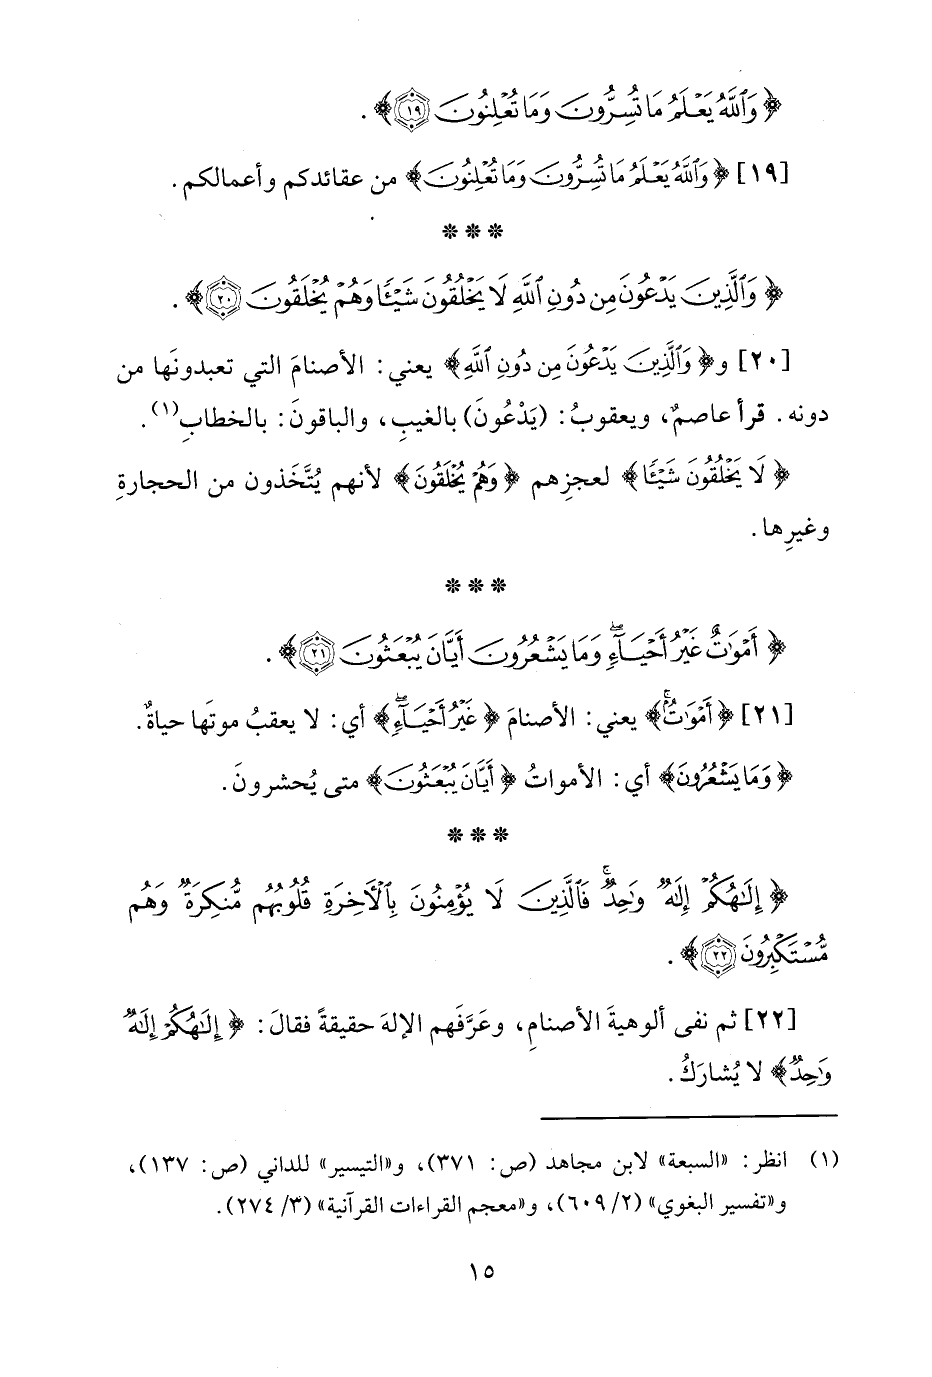 ﴿ وَٱللَّهُ يَعْلَمُ مَا تُسِرُّونَ وَمَا تُعْلِنُونَ ١٩ ﴾ .
[١٩] ﴿ وَٱللَّهُ يَعْلَمُ مَا تُسِرُّونَ وَمَا تُعْلِنُونَ ﴾ من عقائدكم وأعمالكم .
***
﴿ وَٱلَّذِينَ يَدْعُونَ مِن دُونِ ٱللَّهِ لَا يَخْلُقُونَ شَيْـًٔا وَهُمْ يُخْلَقُونَ ٢٠ ﴾ .
[٢٠] و﴿ وَٱلَّذِينَ يَدْعُونَ مِن دُونِ ٱللَّهِ ﴾ يعني: الأصنامَ التي تعبدونَها من
دونه . قرأ عاصمٌ، ويعقوبُ: (يَدْعُونَ) بالغيبِ، والباقونَ: بالخطابِ(١).
﴿ لَا يَخْلُقُونَ شَيْـًٔا ﴾ لعجزِهم ﴿ وَهُمْ يُخْلَقُونَ ﴾ لأنهم يُتَّخَذون من الحجارةِ
وغيرِها .
***
﴿ أَمْوَٰتٌ غَيْرُ أَحْيَآءٍ وَمَا يَشْعُرُونَ أَيَّانَ يُبْعَثُونَ ٢١ ﴾ .
[٢١] ﴿ أَمْوَٰتٌ ﴾ يعني: الأصنامَ ﴿ غَيْرُ أَحْيَآءٍ ﴾ أي: لا يعقبُ موتَها حياةٌ.
﴿ وَمَا يَشْعُرُونَ ﴾ أي: الأمواتُ ﴿ أَيَّانَ يُبْعَثُونَ ﴾ متى يُحشرونَ.
***
﴿ إِلَٰهُكُمْ إِلَٰهٌ وَٰحِدٌ فَٱلَّذِينَ لَا يُؤْمِنُونَ بِٱلْأَخِرَةِ قُلُوبُهُم مُّنكِرَةٌ وَهُم
مُّسْتَكْبِرُونَ ٢٢ ﴾ .
[٢٢] ثم نفى ألوهيةَ الأصنامِ، وعَرَّفَهم الإلهَ حقيقةً فقالَ: ﴿ إِلَٰهُكُمْ إِلَٰهٌ
وَٰحِدٌ ﴾ لا يُشارَكُ .
(١) انظر: «السبعة» لابن مجاهد (ص: ٣٧١)، و«التيسير» للداني (ص: ١٣٧)،
و«تفسير البغوي» (٢/ ٦٠٩)، و«معجم القراءات القرآنية» (٣/ ٢٧٤).
١٥